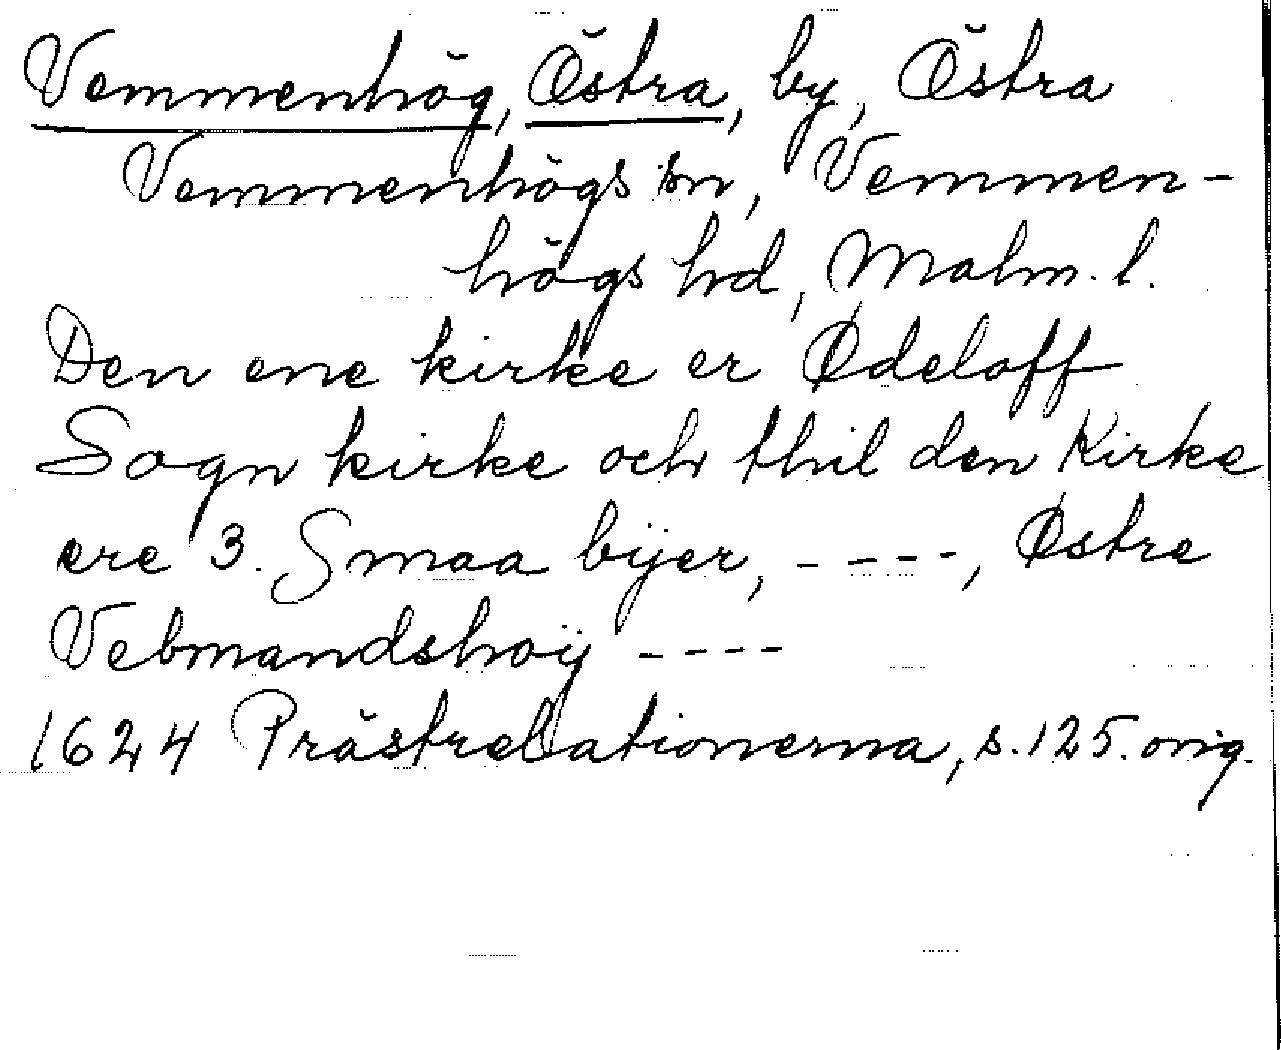 Vemmenhög, Östra, by, Östra
Vemmenhögs sn, Vemmen-
högs hd, Malm. l.
Den ene kirke er Ødeloff
Sogn kirke och thil den Kirke
ere 3. Smaa bÿer, - - - -, Østre
Vebmandshoÿ - - - -
1624 Prästrelationerna, s. 125. orig.